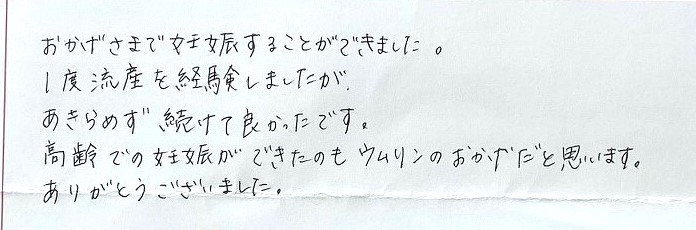 おかげさまで妊娠することができました。
1度流産を経験しましたが、
あきらめず続けて良かったです。
高齢での妊娠ができたのもウムリンのおかげだと思います。
ありがとうございました。